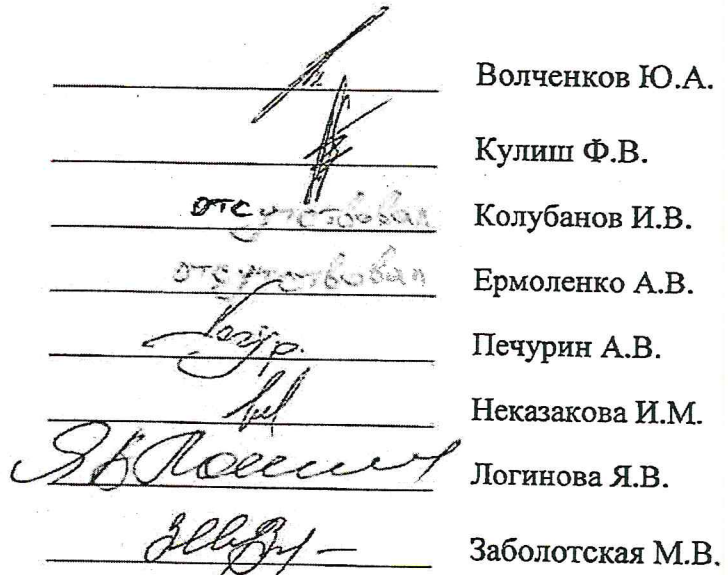 Волченков Ю.А.
Кулиш Ф.В.
отсутствовал Колубанов И.В.
отсутствовал Ермоленко А.В.
Печурин А.В.
Неказакова И.М.
Логинова Я.В.
Заболотская М.В.